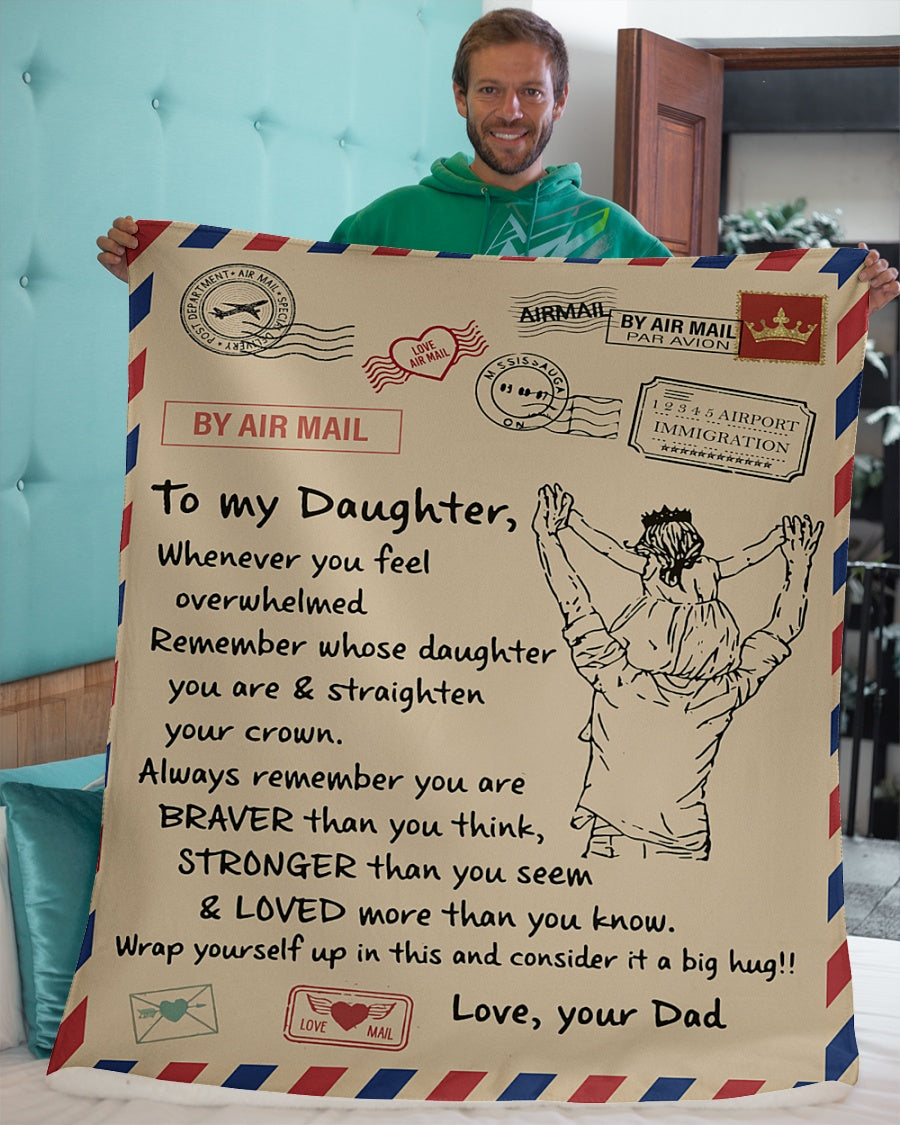 POST DEPARTMENT • AIR MAIL • SPECIAL DELIVERY •
AIRMAIL
BY AIR MAIL
PAR AVION
LOVE
AIR MAIL
MISSISSAUGA
ON
1 2 3 4 5 AIRPORT
IMMIGRATION
BY AIR MAIL
To my Daughter,
Whenever you feel
overwhelmed
Remember whose daughter
you are & straighten
your crown.
Always remember you are
BRAVER than you think,
STRONGER than you seem
& LOVED more than you know.
Wrap yourself up in this and consider it a big hug!!
Love, your Dad
LOVE MAIL